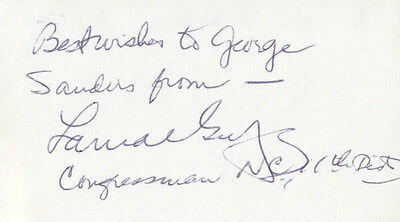 Best wishes to George
Sanders from —
Lamar Gudger
Congressman N.C., 11th Dist